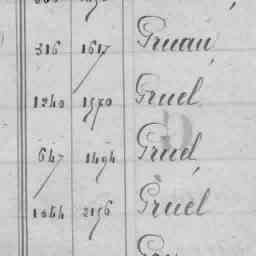 316 1617 Gruau,
1240 1570 Gruel,
647 1494 Gruel,
1064 2156 Gruel